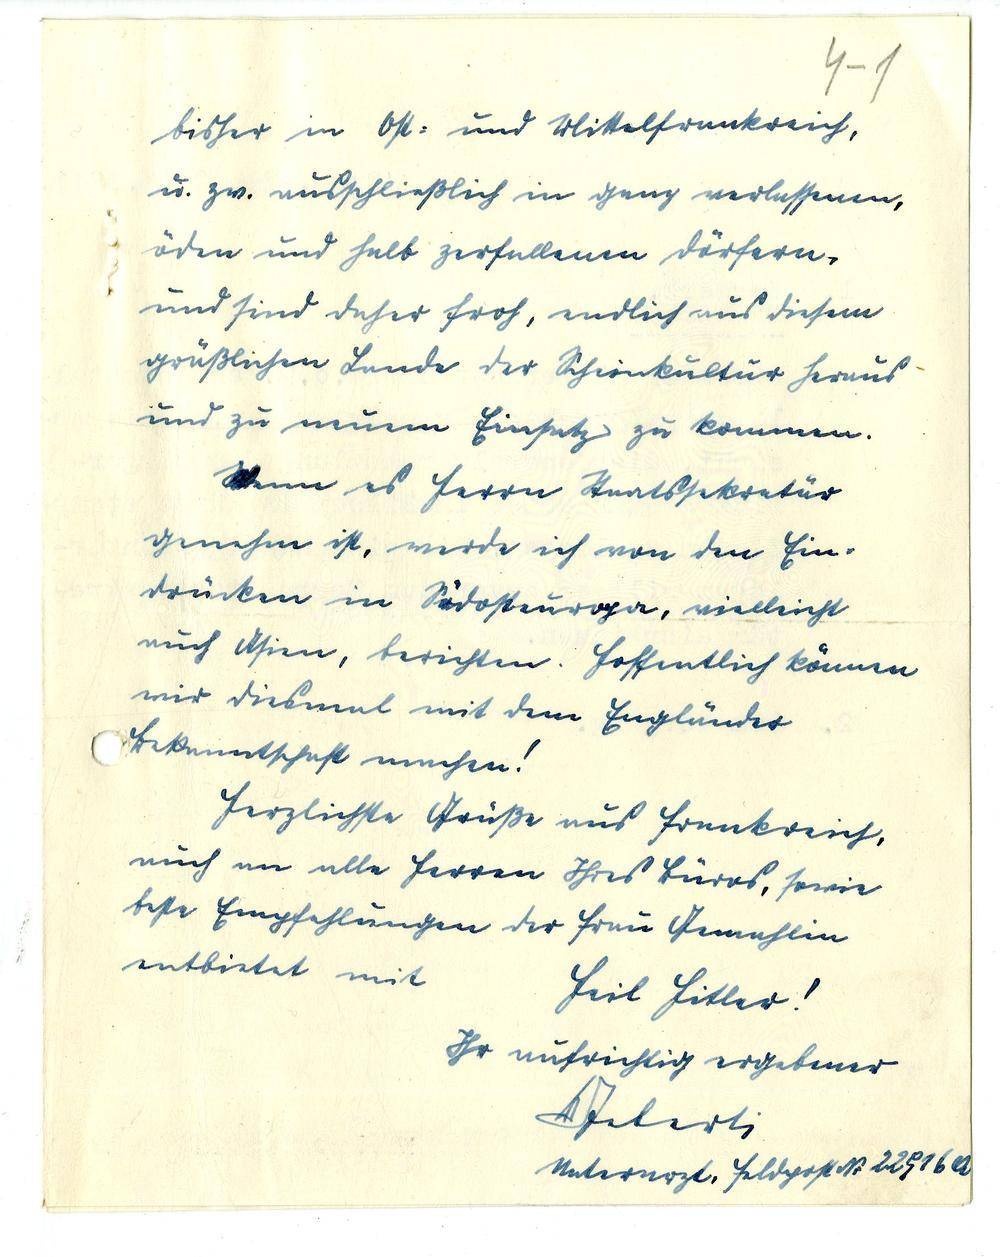 4-1
bisher in Ost= und Mittelfrankreich,
u. zw. ausschließlich in ganz verlassenen,
öden und halb zerfallenen Dörfern,
und sind daher froh, endlich aus diesem
gräßlichen Lande der Scheinkultur heraus
und zu neuem Einsatz zu kommen.
Wenn es Herrn Staatssekretär
genehm ist, werde ich von den Ein-
drücken in Südosteuropa, vielleicht
auch Asien, berichten. Hoffentlich können
wir diesmal mit dem Engländer
Bekanntschaft machen!
Herzlichste Grüße aus Frankreich,
auch an alle Herren Ihres Büros, sowie
beste Empfehlungen der Frau Gemahlin
entbietet mit Heil Hitler!
Ihr aufrichtig ergebener
Unterarzt, Feldpost Nr 22916 A